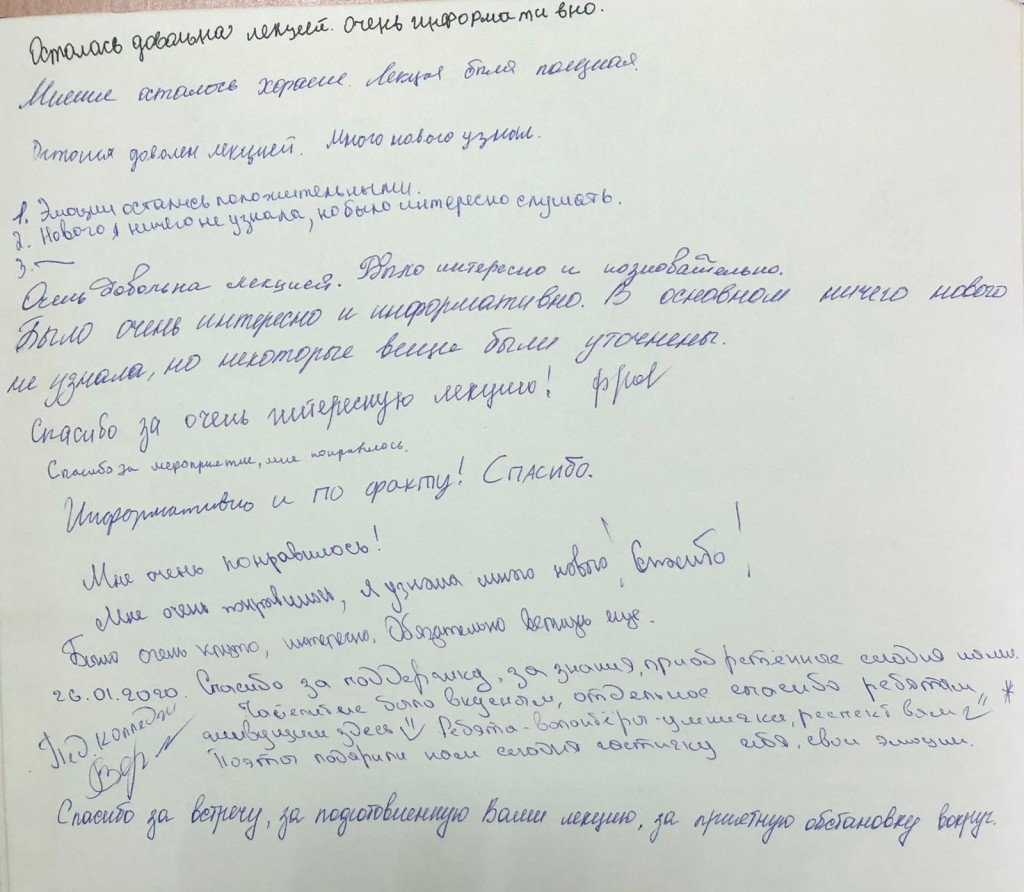 Осталась довольна лекцией. Очень информативно.
Мнение осталось хорошее. Лекция была полезная.
Остался доволен лекцией. Много нового узнал.
1. Эмоции остались положительными.
2. Нового я ничего не узнала, но было интересно слушать.
3. —
Очень довольна лекцией. Было интересно и познавательно.
Было очень интересно и информативно. В основном ничего нового
не узнала, но некоторые вещи были уточнены.
Спасибо за очень интересную лекцию!
Спасибо за мероприятие, мне понравилось.
Информативно и по факту! Спасибо.
Мне очень понравилось!
Мне очень понравилось, я узнала много нового! Спасибо!
Было очень круто, интересно. Обязательно вернусь еще.
26.01.2020. Спасибо за поддержку, за знания, приобретённое сегодня нами.
Чаепитие было вкусным, отдельное спасибо ребятам,
Пед. колледж
живущим здесь Ребята-волонтёры-умнички, респект вам *
Поэты подарили нам сегодня частичку себя, свои эмоции.
Спасибо за встречу, за подготовленную Вами лекцию, за приятную обстановку вокруг.